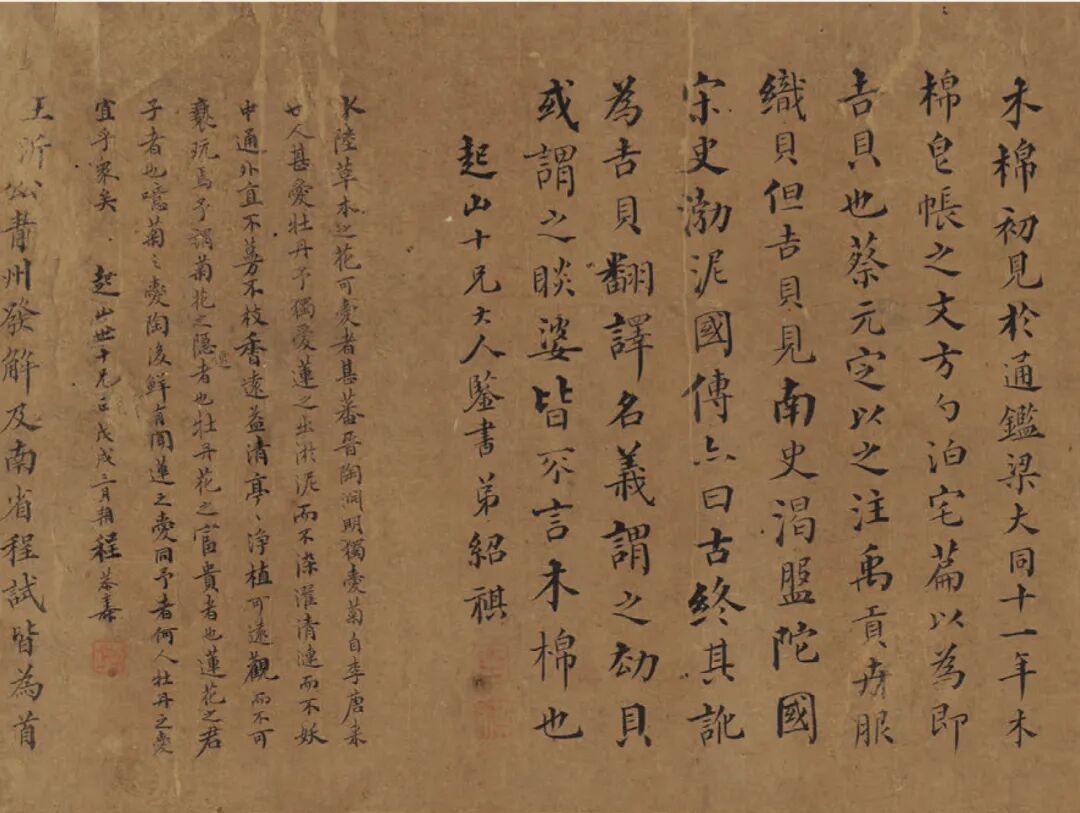 木棉初見於通鑑梁大同十一年木
棉皂帳之文方勺泊宅篇以為即
吉貝也蔡元定以之注禹貢卉服
織貝但吉貝見南史渴盤陀國
宋史渤泥國傳亦曰古終其訛
為吉貝翻譯名義謂之劫貝
或謂之睒婆皆不言木棉也
起山十兄大人鑒書弟紹祺
水陸草木之花可愛者甚蕃晉陶淵明獨愛菊自李唐來
世人甚愛牡丹予獨愛蓮之出淤泥而不染濯清漣而不妖
中通外直不蔓不枝香遠益清亭〻淨植可遠觀而不可
褻玩焉予謂菊花之隱者也牡丹花之富貴者也蓮花之君
子者也噫菊之愛陶後鮮有聞蓮之愛同予者何人牡丹之愛
宜乎眾矣 起山世十兄正戊戌三月 程恭壽
王沂公青州發解及南省程試皆為首